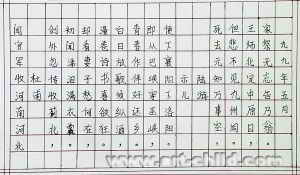 闻官军收河南河北
杜南
剑外忽传收蓟北，
初闻涕泪满衣裳。
却看妻子愁何在，
漫卷诗书喜欲狂。
白日放歌须纵酒，
青春作伴好还乡。
即从巴峡穿巫峡，
便下襄阳向洛阳。
示儿
陆游
死去元知万事空，
但悲不见九州同。
王师北定中原日，
家祭无忘告乃翁。